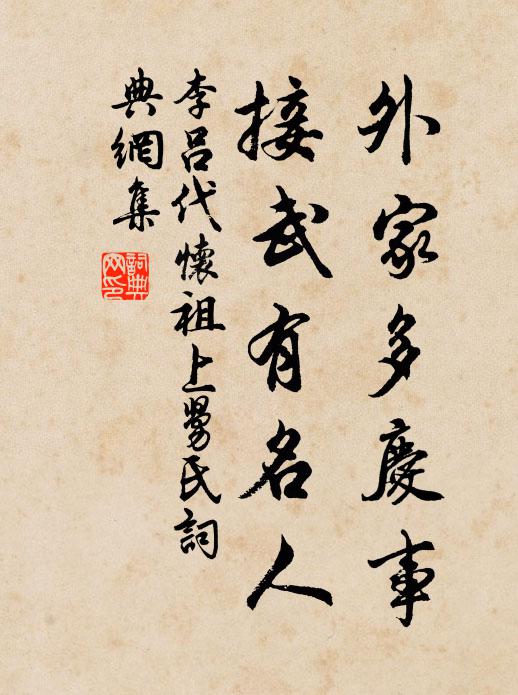 外家多慶事
接武有名人
李呂代懷祖上舅氏詞
典網集
詞典網印